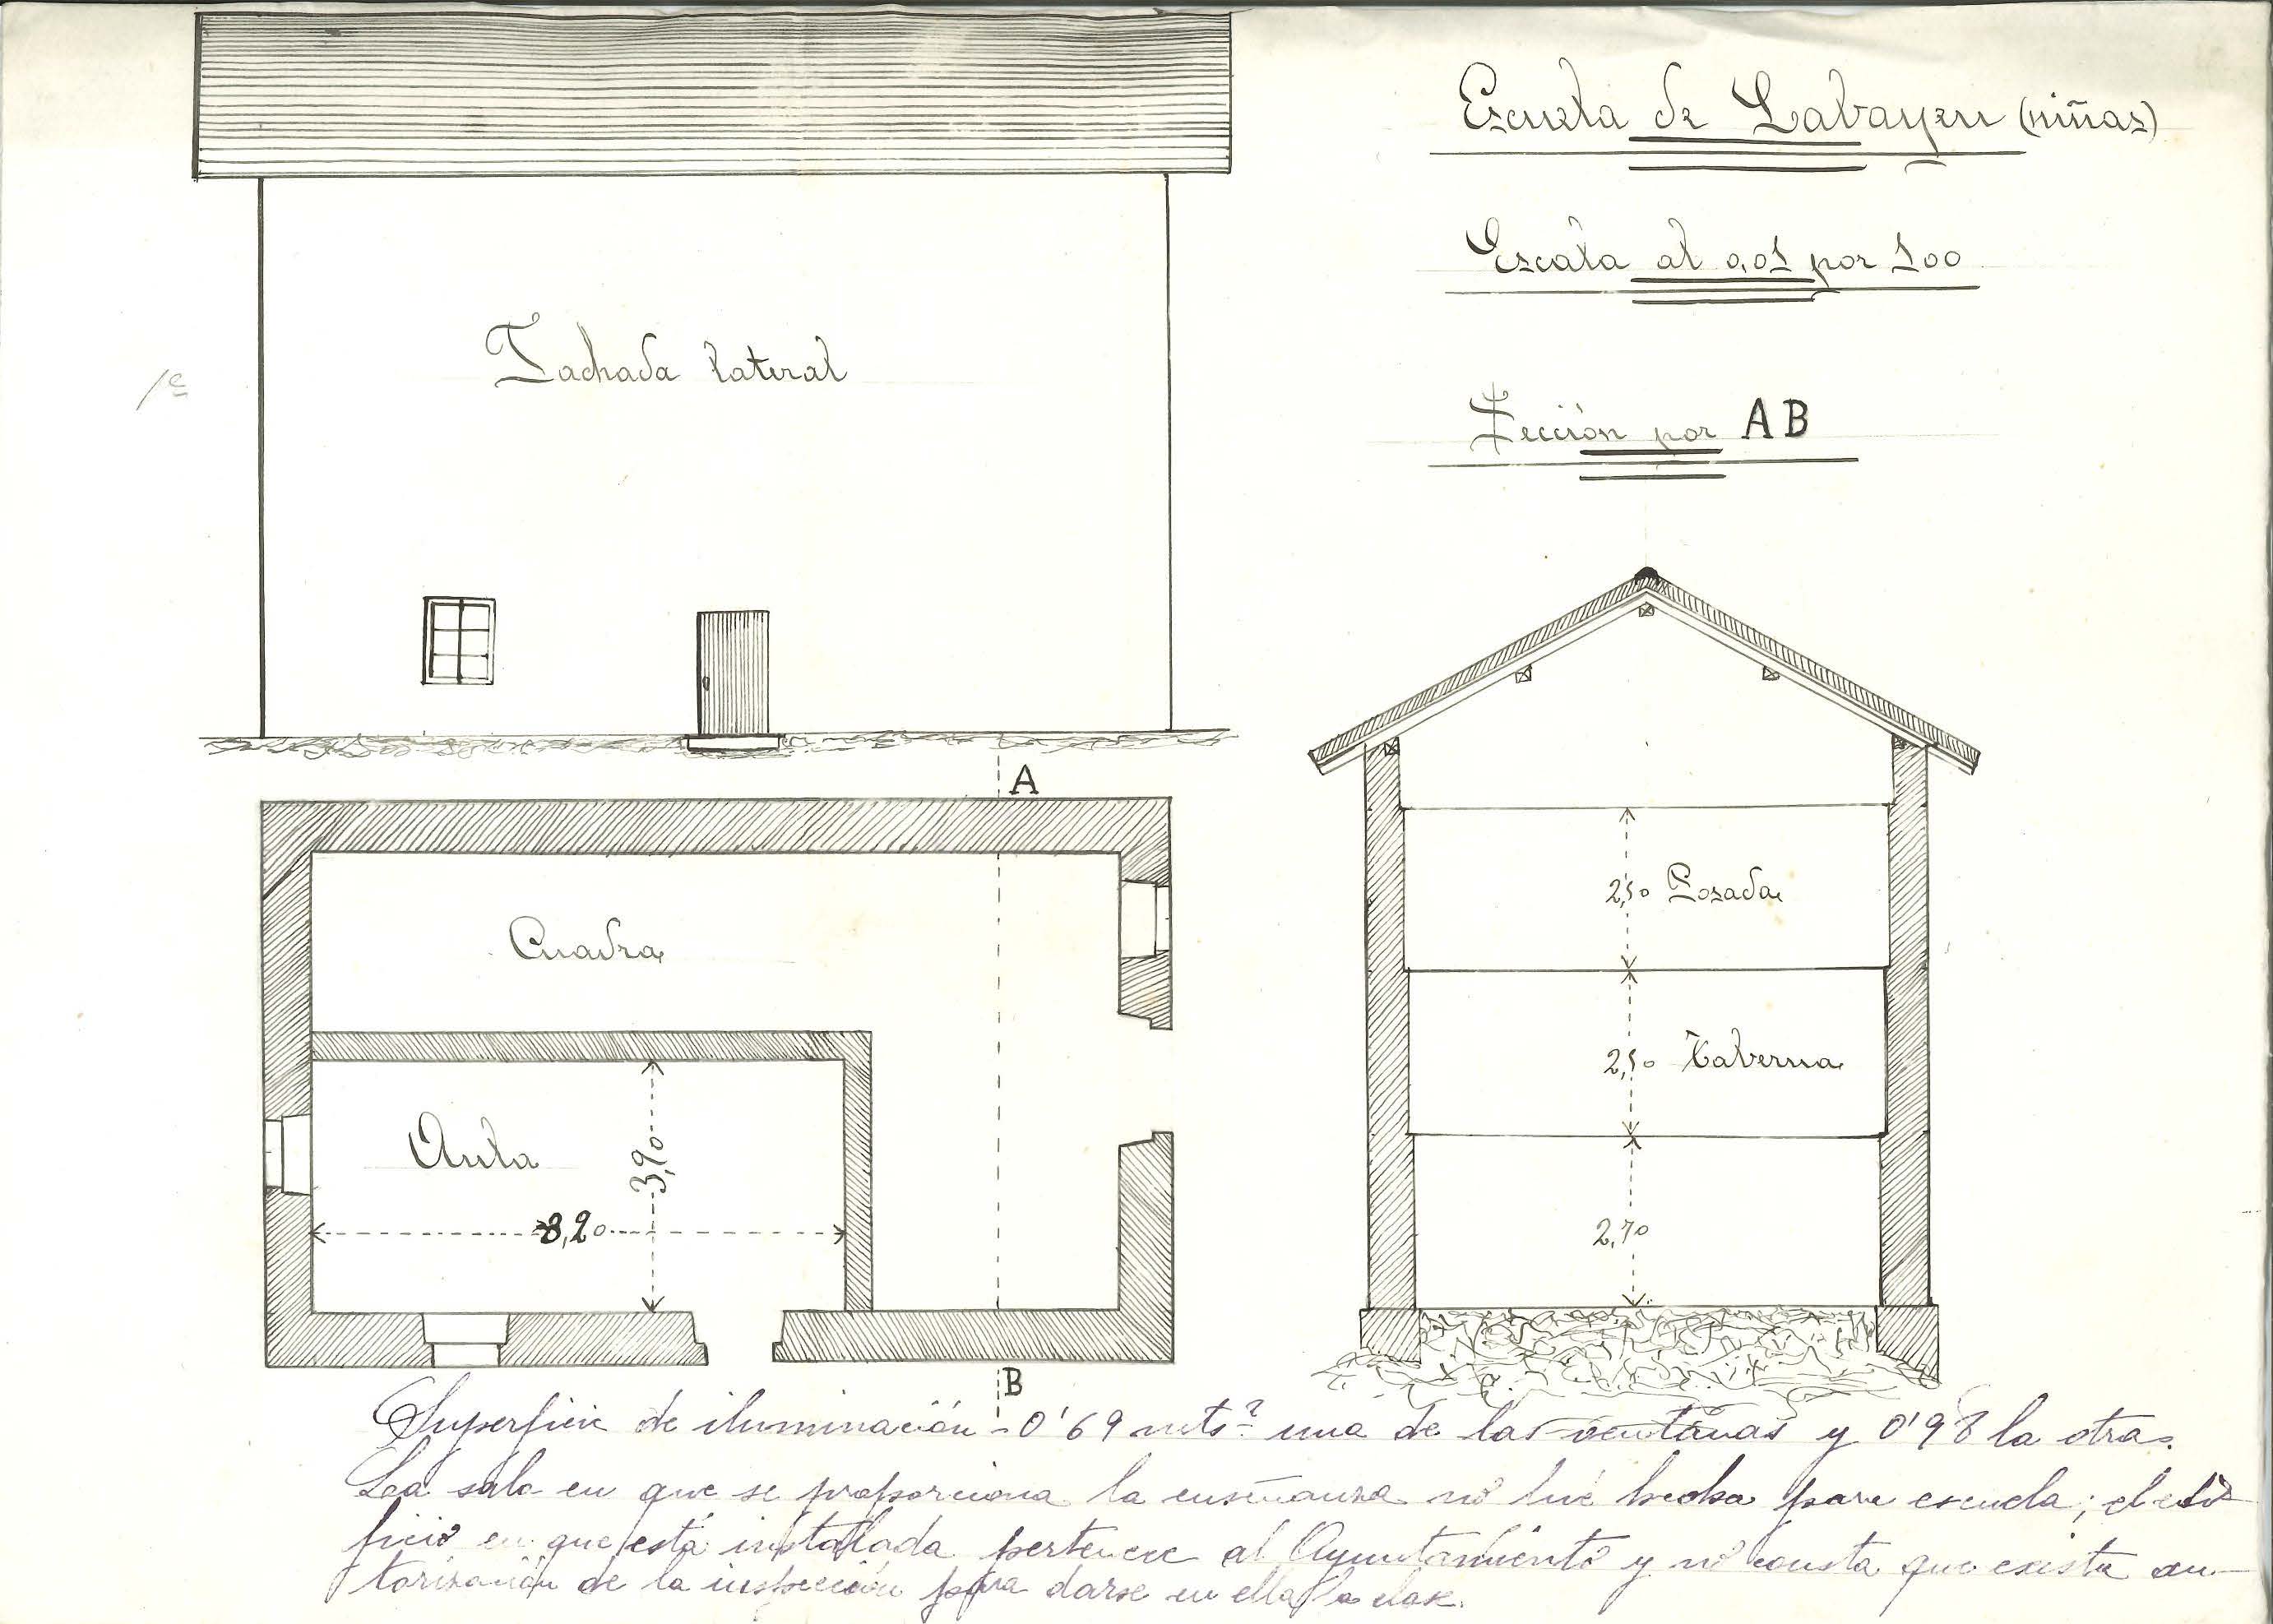 Escuela de Labayen (niñas)
Escala al 0,01 por 100
Fachada lateral
Sección por AB
A
Cuadra
Aula
3,90
8,20
B
2,50 Posada
2,50 Taberna
2,70
Superficie de iluminación - 0'69 mts² una de las ventanas y 0'98 la otra.
La sala en que se proporciona la enseñanza no fué hecha para escuela; el edi-
ficio en que está instalada pertenece al Ayuntamiento y no consta que exista au-
torización de la inspección para darse en ella la clase.